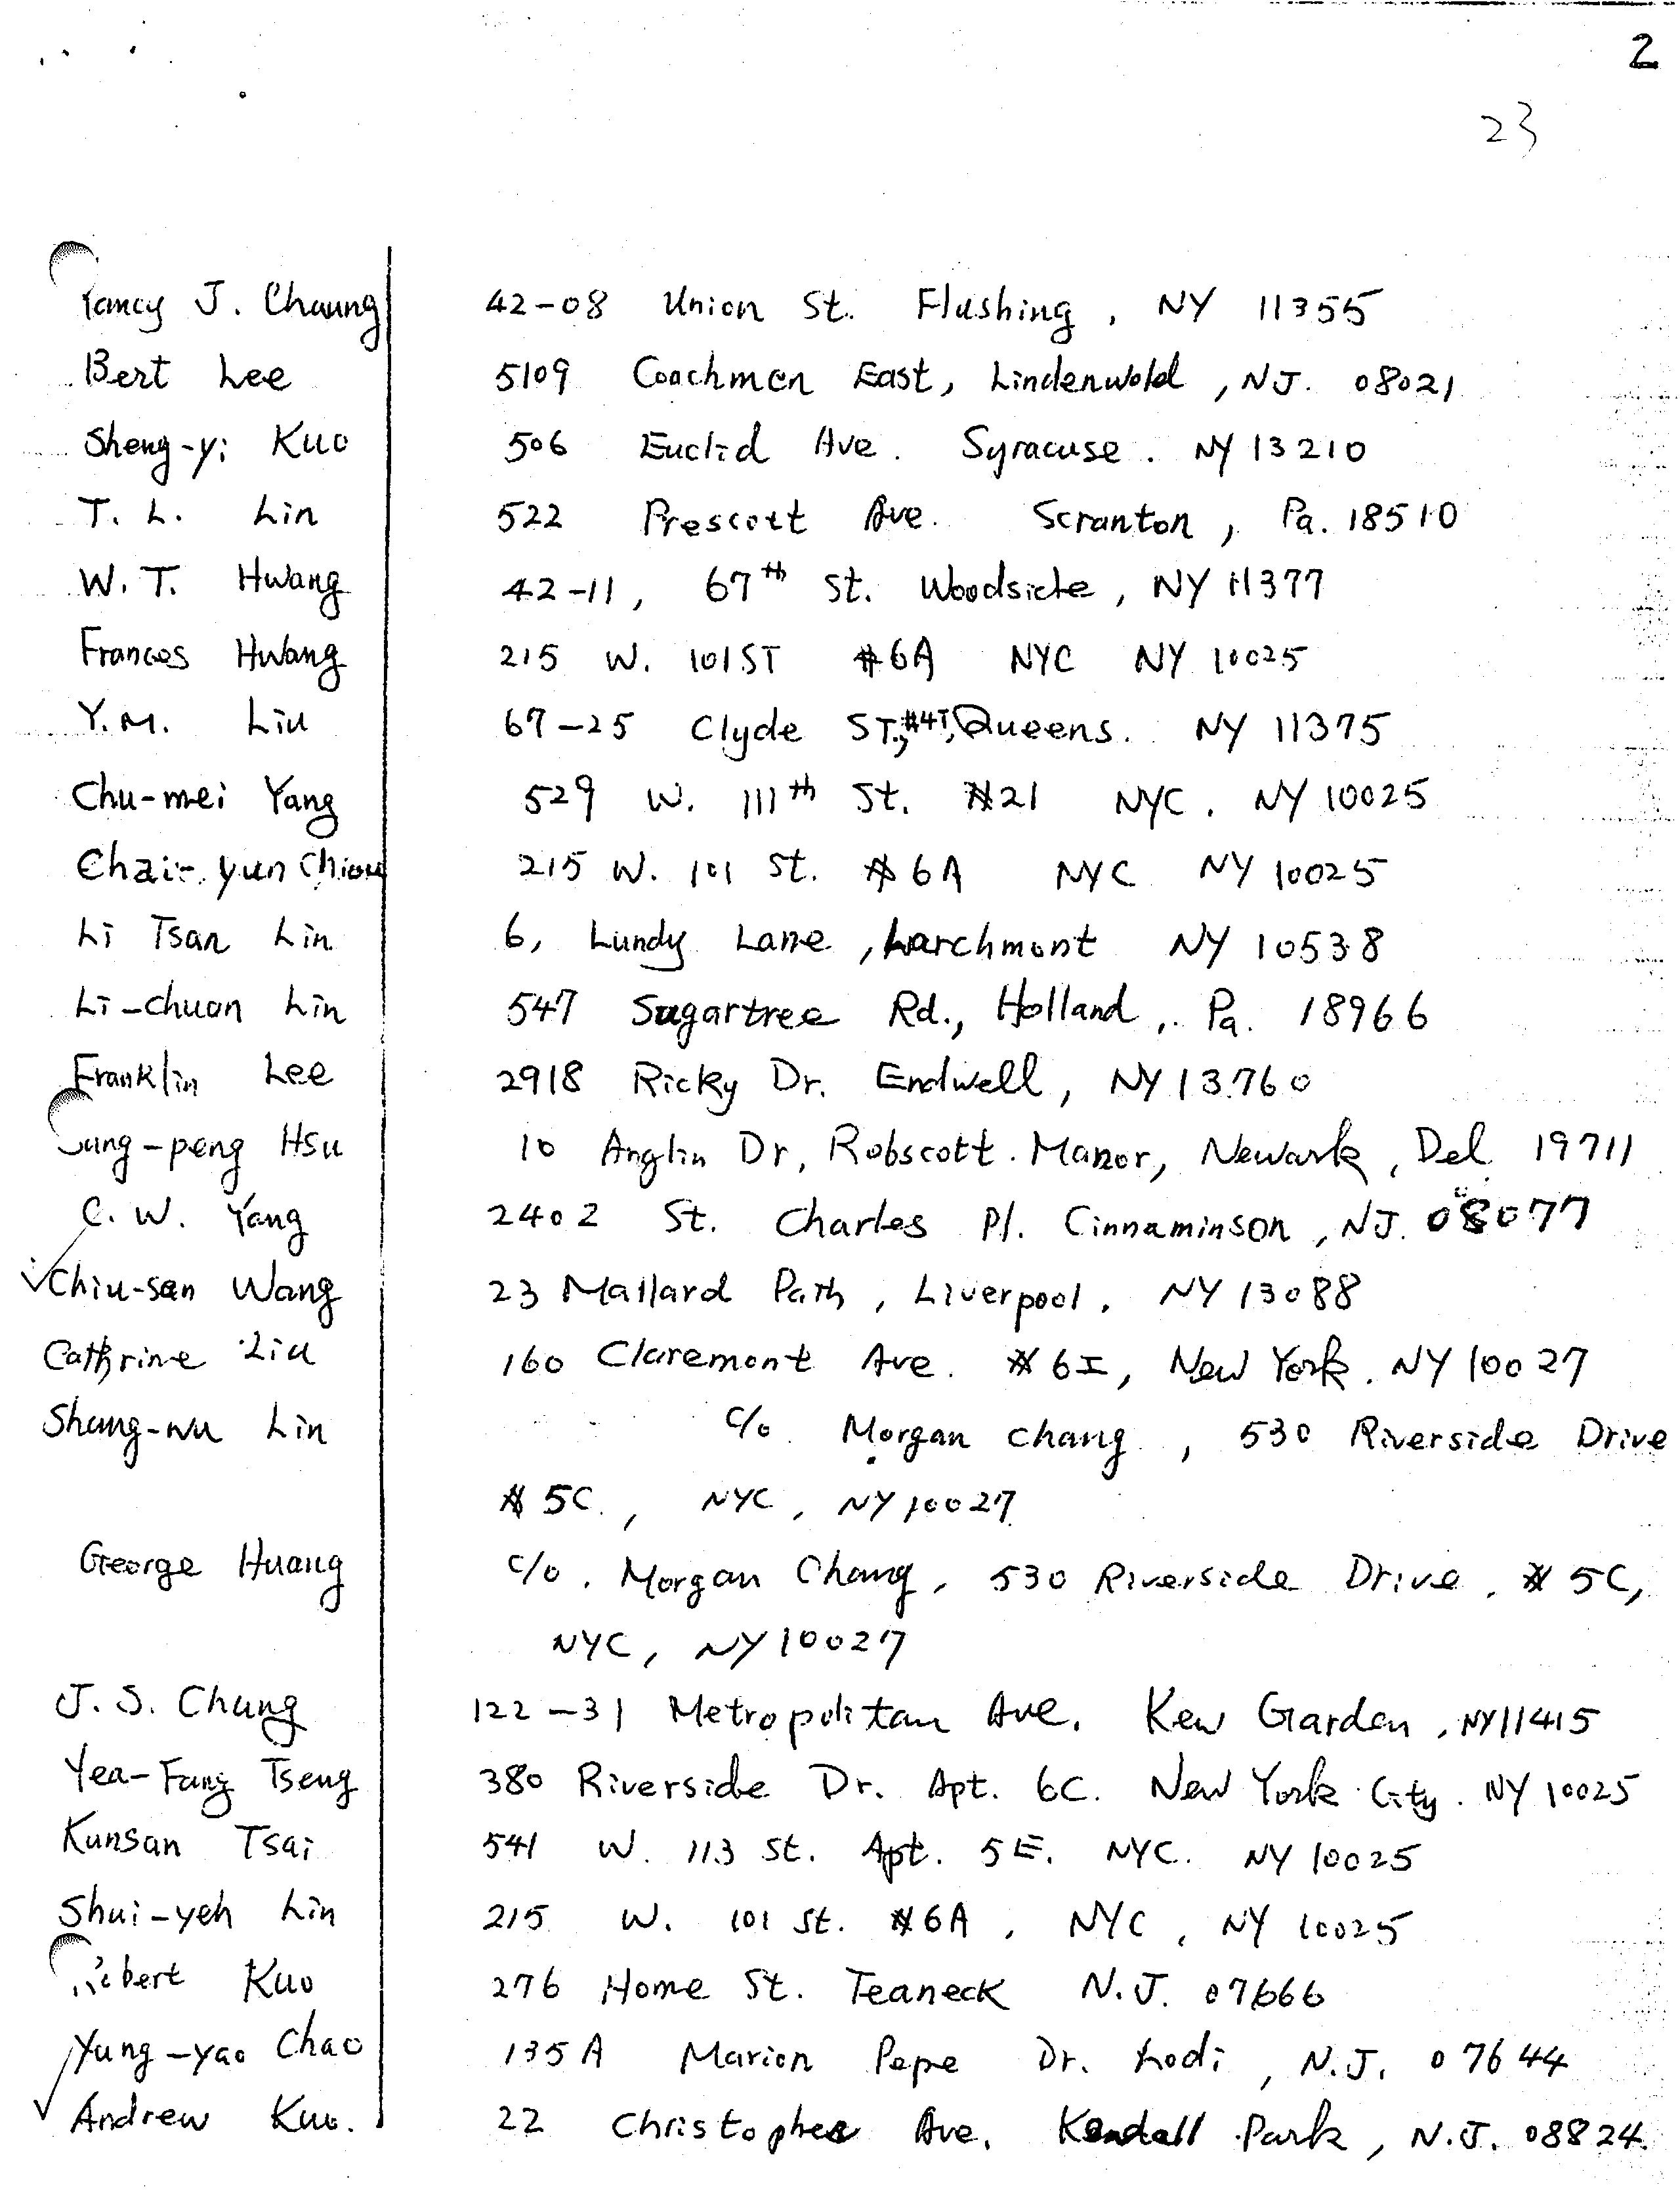 2
23
J. Chuang 42-08 Union St. Flushing, NY 11355
Bert Lee 5109 Coachman East, Lindenwold, NJ. 08021
Sheng-yi Kuo 506 Euclid Ave. Syracuse. NY 13210
T. L. Lin 522 Prescott Ave. Scranton, Pa. 18510
W. T. Hwang 42-11, 67th St. Woodside, NY 11377
Frances Hwang 215 W. 101 ST #6A NYC NY 10025
Y. M. Liu 67-25 Clyde ST., #4T, Queens. NY 11375
Chu-mei Yang 529 W. 111th St. #21 NYC. NY 10025
Chai-yun Chiou 215 W. 101 St. #6A NYC NY 10025
Li Tsan Lin 6, Lundy Lane, Larchmont NY 10538
Li-chuan Lin 547 Sugartree Rd., Holland, Pa. 18966
Franklin Lee 2918 Ricky Dr. Endwell, NY 13760
-peng Hsu 10 Anglin Dr, Robscott Manor, Newark, Del 19711
C. W. Yang 2402 St. Charles Pl. Cinnaminson, NJ. 08077
✓Chiu-san Wang 23 Mallard Path, Liverpool, NY 13088
Cathrine Liu 160 Claremont Ave. #6I, New York. NY 10027
Shung-wu Lin c/o. Morgan Chang, 530 Riverside Drive
#5C., NYC, NY 10027
George Huang c/o. Morgan Chang, 530 Riverside Drive. #5C,
NYC, NY 10027
J. S. Chung 122-31 Metropolitan Ave. Kew Garden, NY 11415
Yea-Fang Tseng 380 Riverside Dr. Apt. 6C. New York City. NY 10025
Kunsan Tsai 541 W. 113 St. Apt. 5E. NYC. NY 10025
Shui-yeh Lin 215 W. 101 St. #6A, NYC, NY 10025
Robert Kuo 276 Home St. Teaneck N.J. 07666
Yung-yao Chao 135A Marion Pepe Dr. Lodi, N.J. 07644
✓Andrew Kuo. 22 Christopher Ave. Kendall Park, N.J. 08824